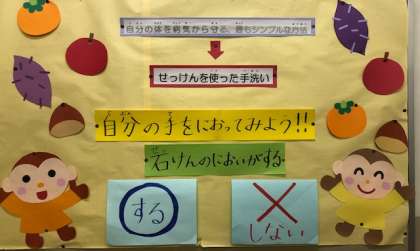 自分の体を病気から守る、最もシンプルな方法
せっけんを使った手洗い
自分の手をにおってみよう!!
石けんのにおいがする
する
しない